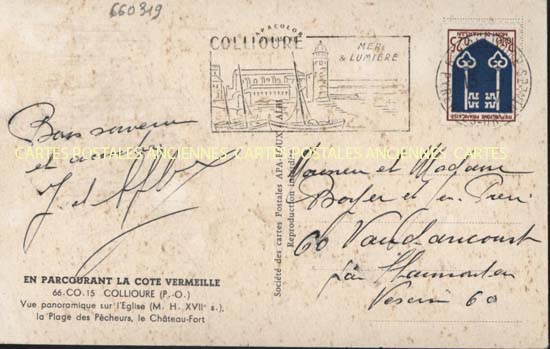 660819
APACOLOR
COLLIOURE
MER
& LUMIÈRE
0,25
MONT-DE-MARSAN
REPUBLIQUE FRANCAISE
Bon souvenir
et
J et
CARTES POSTALES ANCIENNES CARTES POSTALES ANCIENNES CARTES
EN PARCOURANT LA COTE VERMEILLE
66-CO-15 COLLIOURE (P.-O.)
Vue panoramique sur l'Eglise (M. H. XVIIe s.),
la Plage des Pêcheurs, le Château-Fort
Société des cartes Postales APA-POUX - ALBI
Reproduction interdite
Monsieur et Madame
Boyer et
60 Vaudrancourt
par Chaumont en
Vexin 60